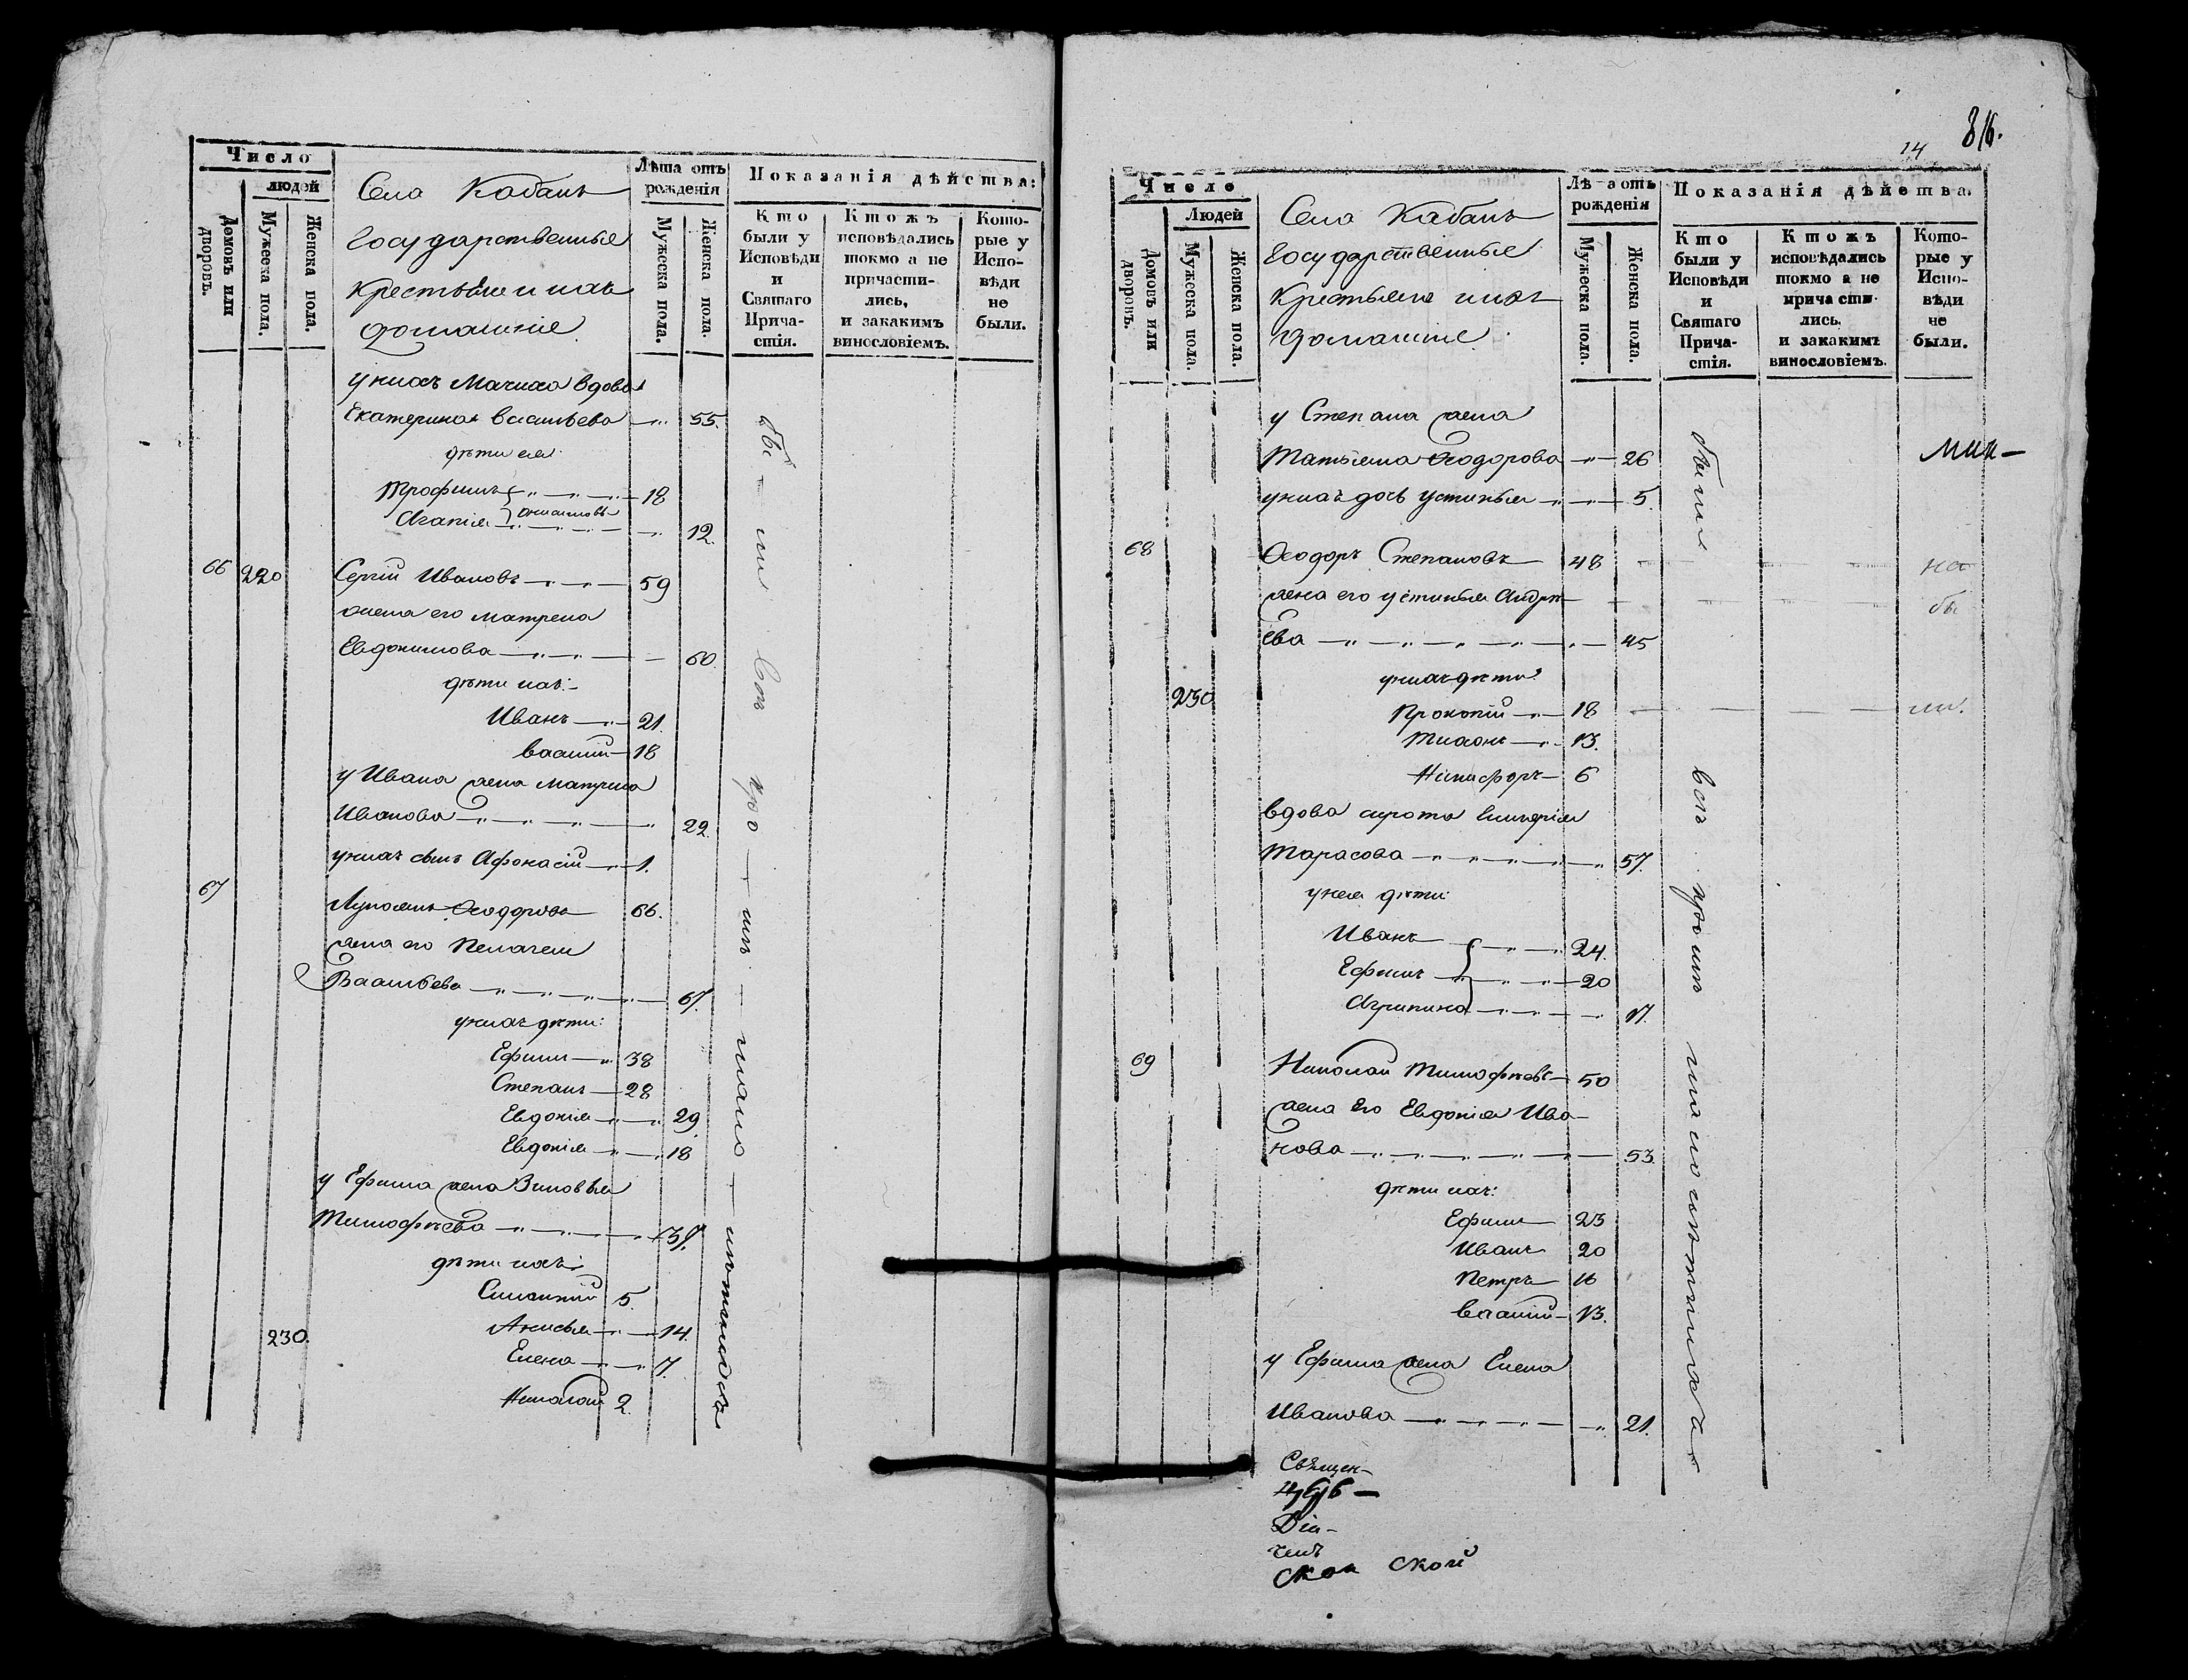 Число
людей
Домовъ или дворовъ.
Мужеска пола.
Женска пола.
Села Кабанъ
Государственные
крестьяне и ихъ
домашніе
Лѣта отъ рожденія
Мужеска пола.
Женска пола.
Показанія дѣйства:
Кто были у Исповѣди и Святаго Причастія.
Ктожъ исповѣдались токмо а не причастились, и закакимъ винословіемъ.
Которые у Исповѣди не были.
у нихъ Мачиха вдова
Екатерина Васильева 55.
дѣти ея
Трофимъ 18
Агапія 12.
66 220 Сергій Ивановъ 59
жена его Матрена
Евдокимова 60.
дѣти ихъ:
Иванъ 21.
Василій 18
у Ивана жена Матрена
Иванова 22.
у нихъ сынъ Афонасій 1.
67 Ѳеодоровъ 66.
жена его Пелагея
Васильева 67.
у нихъ дѣти:
Ефимъ 38
Степанъ 28
Евдокія 29
Евдокія 18
у Ефима жена Зиновья
Тимофѣева 37.
дѣти ихъ:
5.
230. Анисья 14.
Елена 7.
Николай 2.
14
816.
Число
Людей
Домовъ или дворовъ.
Мужеска пола.
Женска пола.
Села Кабанъ
Государственные
Крестьяне ихъ
домашніе.
Лѣта отъ рожденія
Мужеска пола.
Женска пола.
Показанія дѣйства.
Кто были у Исповѣди и Святаго Причастія.
Ктожъ исповѣдались токмо а не причастились. и закакимъ винословіемъ.
Которые у Исповѣди не были.
у Степана жена
Татьяна Ѳеодорова 26
у нихъ дочь Устинья 5.
68 Ѳеодоръ Степановъ 48 не
жена его Устинья Андре-
ева 45 бы
у нихъ дѣти
230 Прокопій 18 ли.
Тихонъ 13.
Никифоръ 6
вдова сирота Гликерія
Тарасова 57.
у нея дѣти:
Иванъ 24.
Ефимъ 20
Агрипина 17.
69 Николай Тимофѣевъ 50
жена его Евдокія Ива-
нова 53.
дѣти ихъ:
Ефимъ 23
Иванъ 20
Петръ 16
Василій 13.
у Ефима жена Елена
Иванова 21.
были всѣ кромѣ малолѣтныхъ
Священ-
Діа-
ской